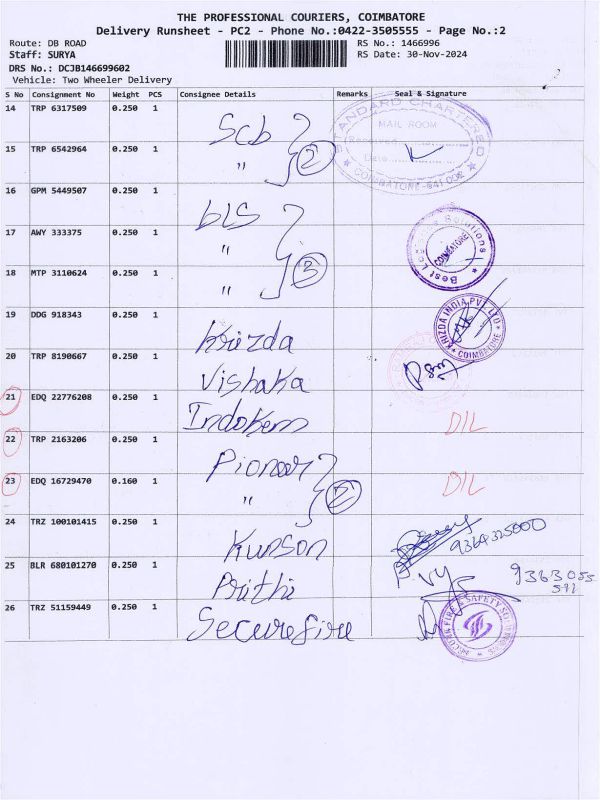 THE PROFESSIONAL COURIERS, COIMBATORE
Delivery Runsheet - PC2 - Phone No.:0422-3505555 - Page No.:2
Route: DB ROAD RS No.: 1466996
Staff: SURYA RS Date: 30-Nov-2024
DRS No.: DCJB146699602
Vehicle: Two Wheeler Delivery
S No Consignment No Weight PCS Consignee Details Remarks Seal & Signature
14 TRP 6317509 0.250 1 Scb
STANDARD CHARTERED
MAIL ROOM
Received
Date
COIMBATORE-641 008
15 TRP 6542964 0.250 1 " 2
16 GPM 5449507 0.250 1 bLS
17 AWY 333375 0.250 1 "
Solutions
COIMBATORE
Best
18 MTP 3110624 0.250 1 " 3
19 DDG 918343 0.250 1 Krizda
KRIZDA INDIA PVT LTD
COIMBATORE
20 TRP 8190667 0.250 1 Vishaka
21 EDQ 22776208 0.250 1 Indokem DIL
22 TRP 2163206 0.250 1 Pioneer
23 EDQ 16729470 0.160 1 " 2 DIL
24 TRZ 100101415 0.250 1 Kunson 9364325000
25 BLR 680101270 0.250 1 Prithi 9363055
591
26 TRZ 51159449 0.250 1 Securefire
FIRE & SAFETY